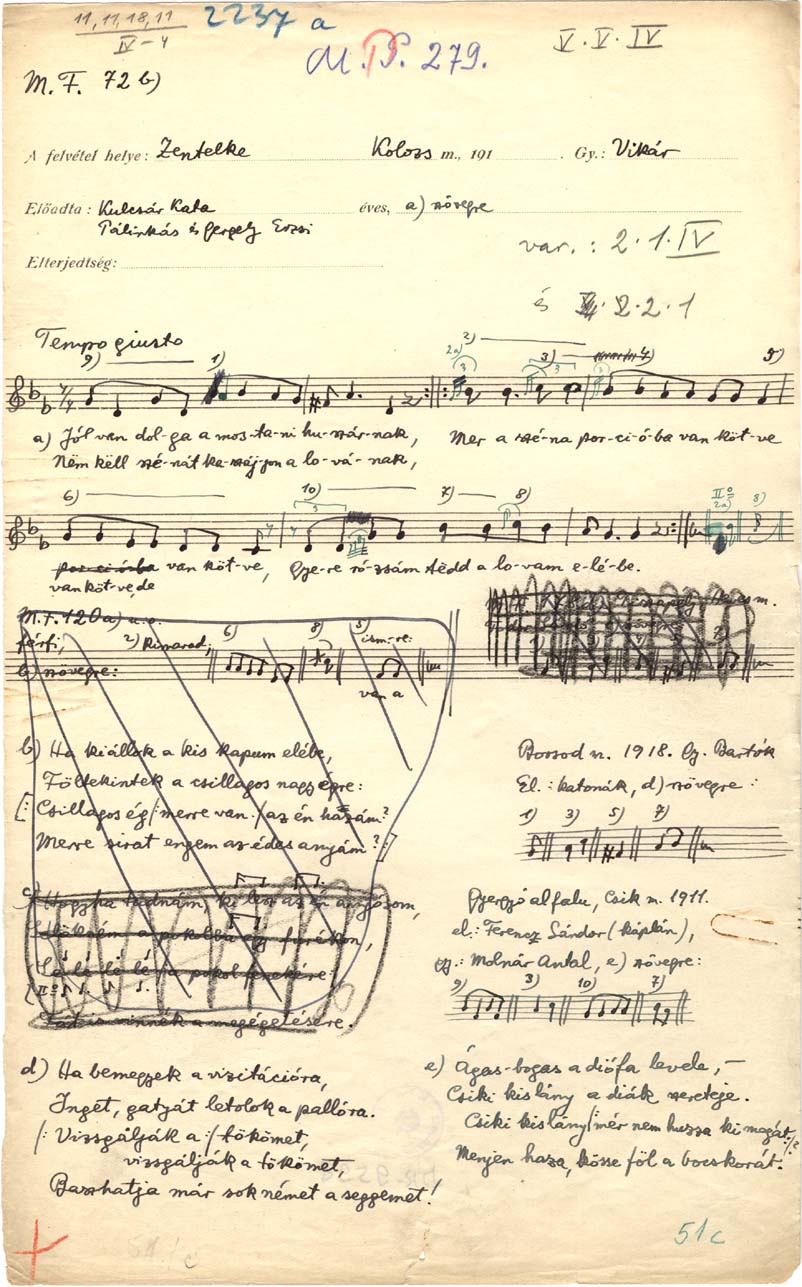 11, 11, 18, 11
IV-4
2237 a
V. V. IV
M.P. 279.
M.F. 72 b)
A felvétel helye: Zentelke Kolozs m., 191 . Gy.: Vikár
Előadta: Kulcsár Kata éves, a) szövegre
Pálinkás és Gergely Erzsi
var.: 2. 1. IV
Elterjedtség:
és 2. 2. 1
Tempo giusto
9) 1) 2) 2a) 3) 5)
a) Jól van dol-ga a mos-ta-ni hu-szár-nak, Mer a szé-na por-ci-ó-ba van köt-ve
Nëm këll szé-nát ka-száj-jon a lo-vá-nak,
6) 10) 7) 8) IIº 2a) 8)
por-ci-ó-ba van köt-ve, Gye-re ró-zsám tëdd a lo-vam e-lé-be.
van köt-ve, de
M.F. 120 a) u.o.
férfi, 2) kimarad; 6) 8) 5) ism.-re:
b) szövegre:
van a
b) Ha kiállok a kis kapum elébe,
Föltekintek a csillagos nagy égre:
[: Csillagos ég /: merre van :/ az én hazám?
Merre sirat engem az édes anyám? :]
Borsod m. 1918. Gy. Bartók
El.: katonák, d) szövegre:
1) 3) 5) 7)
Hogyha tudnám, ki lesz az én anyósom,
Gyergyóalfalu, Csik m. 1911.
el.: Ferencz Sándor (káplán),
gy.: Molnár Antal, e) szövegre:
9) 3) 10) 7)
d) Ha bemegyek a vizitációra,
Inget, gatyát letolok a pallóra.
/: Vizsgálják a :/ tökömet,
vizsgálják a tökömet,
Baszhatja már sok német a seggemet!
e) Ágas-bogas a diófa levele, –
Csiki kislány a diák szereteje.
Csiki kislány /: mér nem huzza ki magát :/?
Menjen haza, kösse föl a bocskorát.
51c